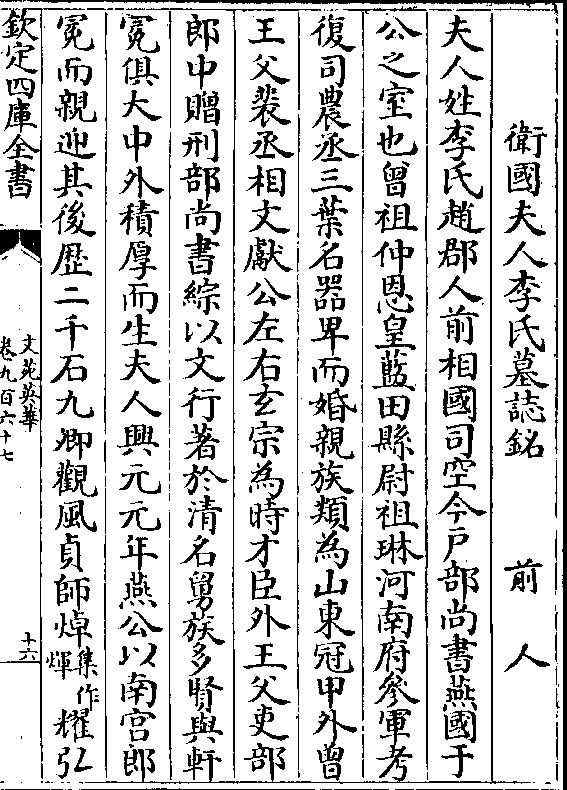 衛國夫人李氏墓誌銘　前人
夫人姓李氏趙郡人前相國司空今戸部尚書燕國于
公之室也曾祖仲恩皇藍田縣尉祖琳河南府參軍考
復司農丞三葉名器卑而婚親族類為山東冠甲外曾
王父裴丞相文獻公左右玄宗為時才臣外王父吏部
郎中贈刑部尚書綜以文行著於清名舅族多賢與軒
冕俱大中外積厚而生夫人興元元年燕公以南宮郎
冕而親迎其後歴二千石九卿觀風貞師焯集作煇耀弘
欽定四庫全書
文苑英華
卷九百六十七
十六